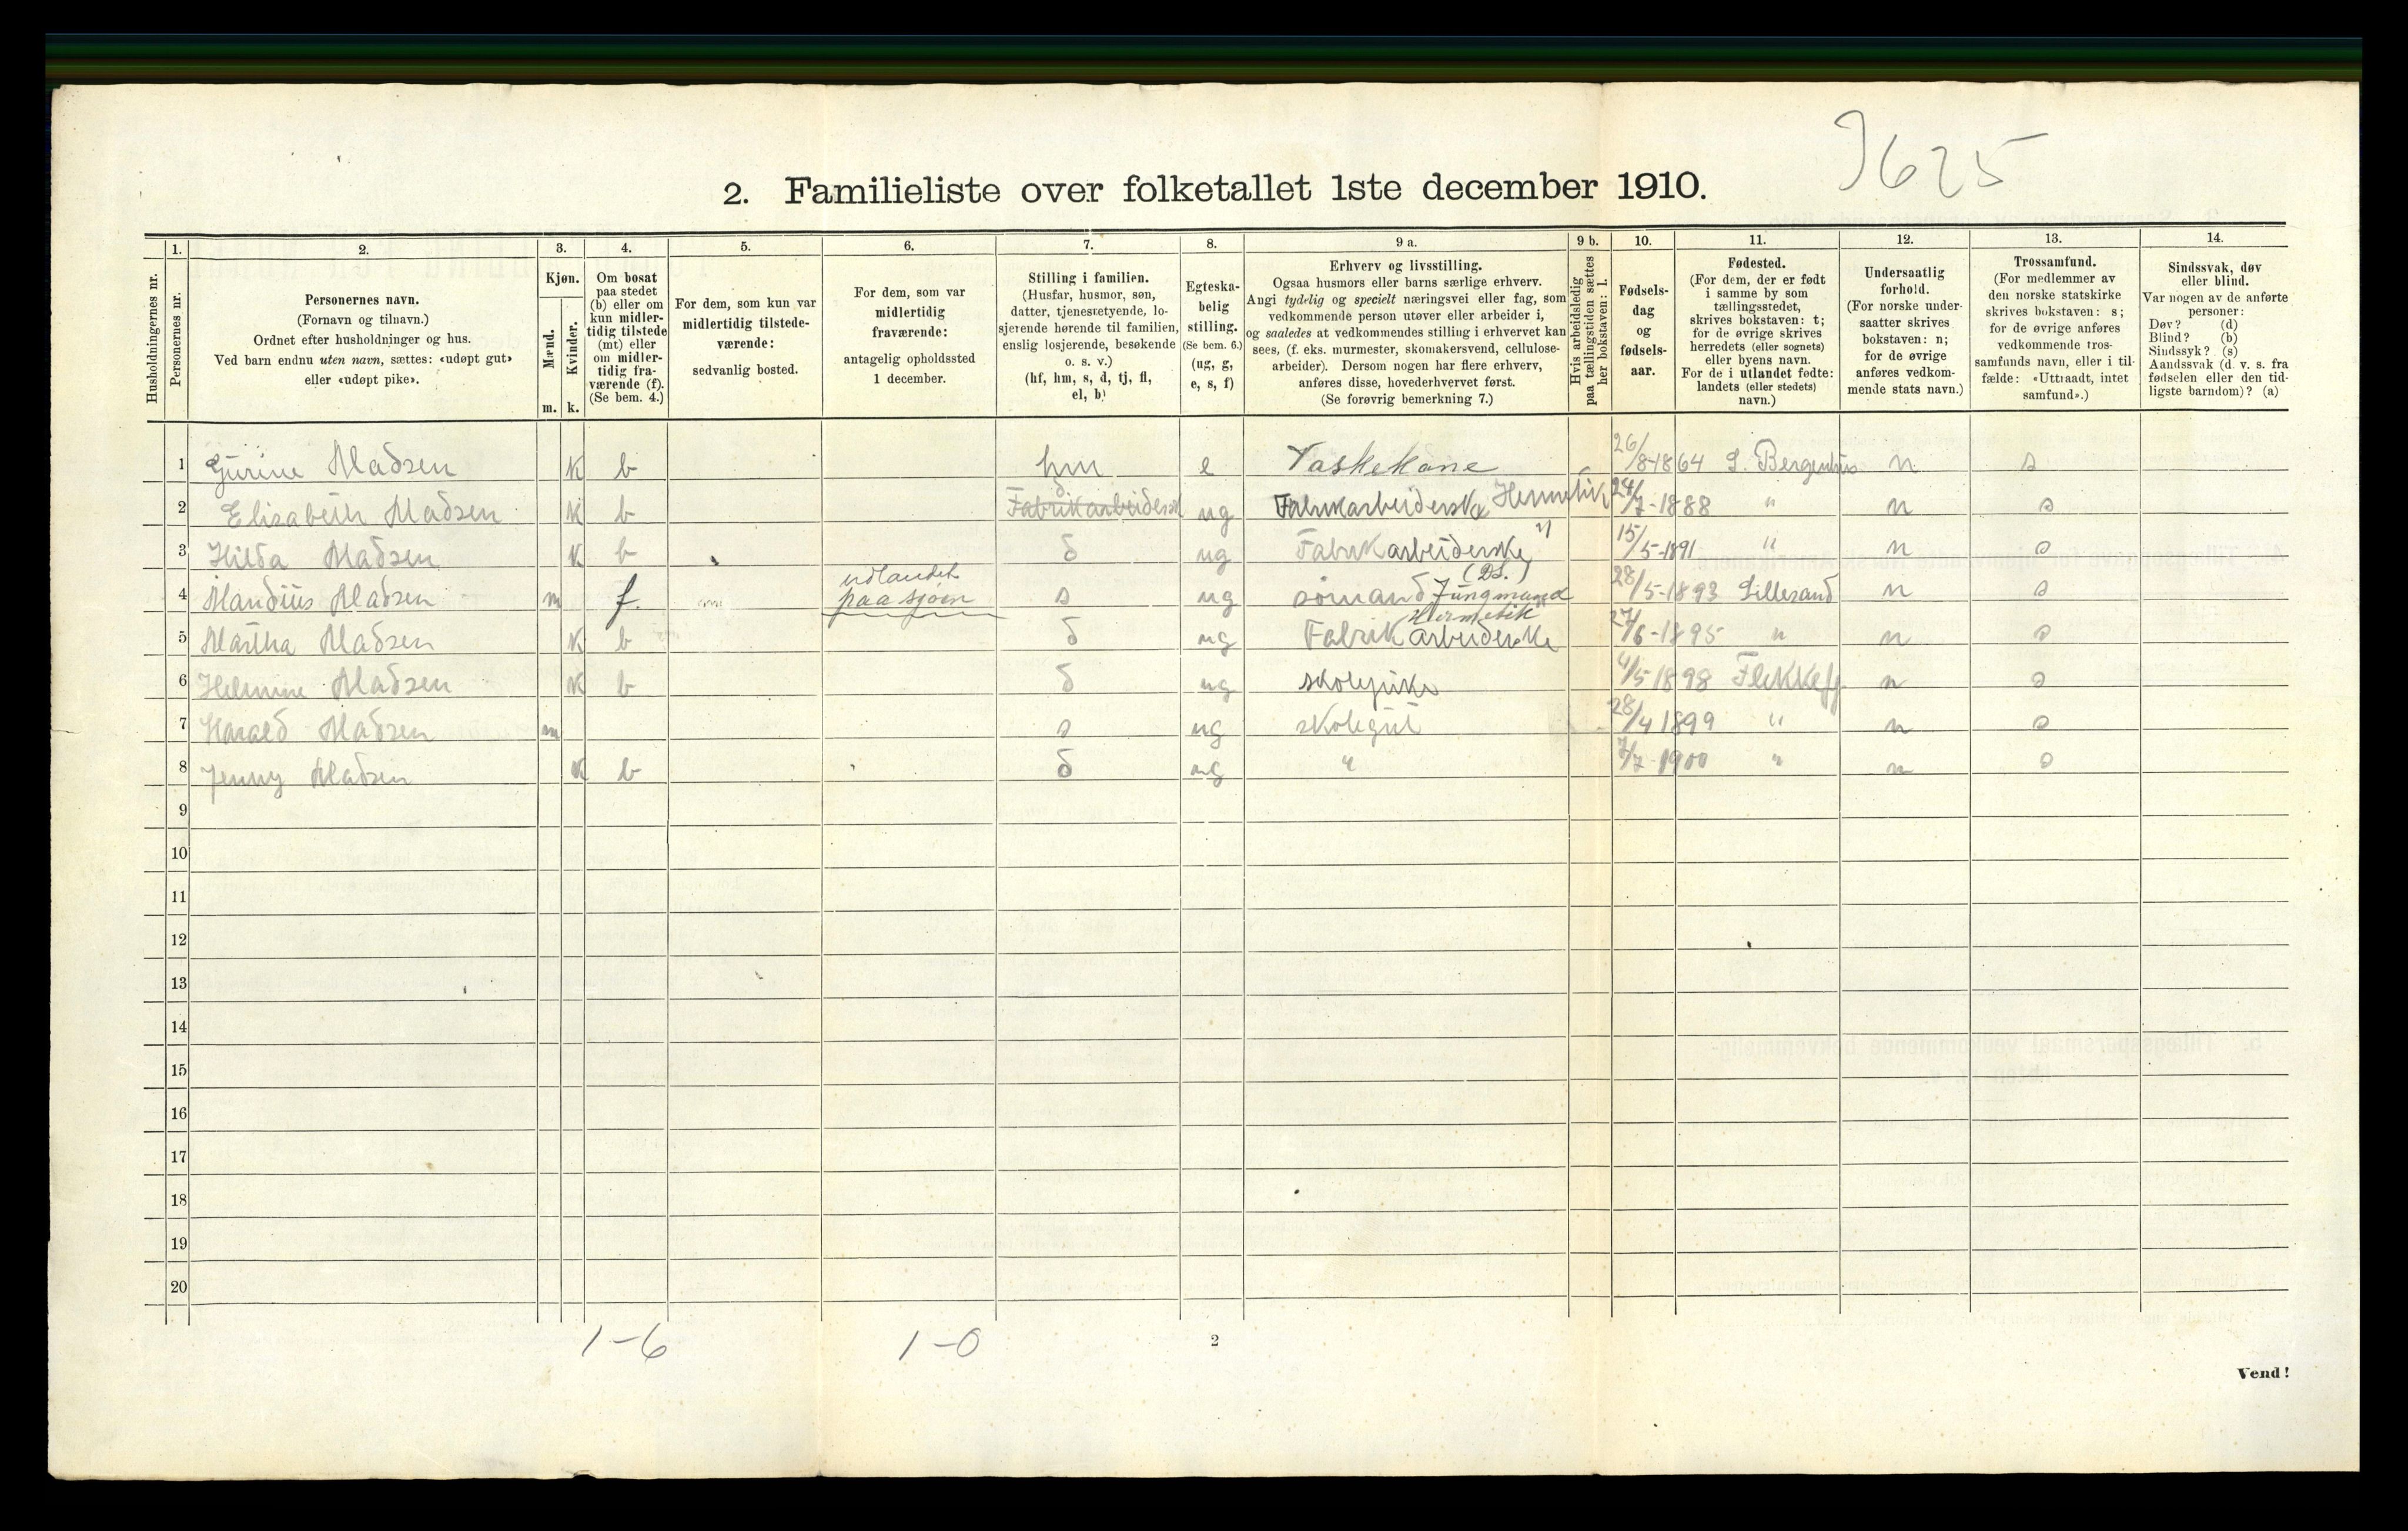 9625
2. Familieliste over folketallet 1ste december 1910.
Husholdningernes nr.
1. Personernes nr.
2. Personernes navn.
(Fornavn og tilnavn.)
Ordnet efter husholdninger og hus.
Ved barn endnu uten navn, sættes: «udøpt gut»
eller «udøpt pike».
3. Kjøn.
Mænd. m.
Kvinder. k.
4. Om bosat
paa stedet
(b) eller om
kun midler-
tidig tilstede
(mt) eller
om midler-
tidig fra-
værende (f).
(Se bem. 4.)
5. For dem, som kun var
midlertidig tilstede-
værende:
sedvanlig bosted.
6. For dem, som var
midlertidig
fraværende:
antagelig opholdssted
1 december.
7. Stilling i familien.
(Husfar, husmor, søn,
datter, tjenestetyende, lo-
sjerende hørende til familien,
enslig losjerende, besøkende
o. s. v.)
(hf, hm, s, d, tj, fl,
el, b)
8. Egteska-
belig
stilling.
(Se bem. 6.)
(ug, g,
e, s, f)
9 a. Erhverv og livsstilling.
Ogsaa husmors eller barns særlige erhverv.
Angi tydelig og specielt næringsvei eller fag, som
vedkommende person utøver eller arbeider i,
og saaledes at vedkommendes stilling i erhvervet kan
sees, (f. eks. murmester, skomakersvend, cellulose-
arbeider). Dersom nogen har flere erhverv,
anføres disse, hovederhvervet først.
(Se forøvrig bemerkning 7.)
9 b. Hvis arbeidsledig
paa tællingstiden sættes
her bokstaven: l.
10. Fødsels-
dag
og
fødsels-
aar.
11. Fødested.
(For dem, der er født
i samme by som
tællingsstedet,
skrives bokstaven: t;
for de øvrige skrives
herredets (eller sognets)
eller byens navn.
For de i utlandet fødte:
landets (eller stedets)
navn.)
12. Undersaatlig
forhold.
(For norske under-
saatter skrives
bokstaven: n;
for de øvrige
anføres vedkom-
mende stats navn.)
13. Trossamfund.
(For medlemmer av
den norske statskirke
skrives bokstaven: s;
for de øvrige anføres
vedkommende tros-
samfunds navn, eller i til-
fælde: «Uttraadt, intet
samfund».)
14. Sindssvak, døv
eller blind.
Var nogen av de anførte
personer:
Døv? (d)
Blind? (b)
Sindssyk? (s)
Aandssvak (d. v. s. fra
fødselen eller den tid-
ligste barndom)? (a)
1 Gurine Madsen k b hm e Vaskekone 26/8-1864 S. Bergenhus n s
2 Elisabeth Madsen k b Fabrikarbeidersk d ug Fabrikarbeiderske Hermetik 24/7-1888 " n s
3 Hilda Madsen k b d ug Fabrikarbeiderske " 15/5-1891 " n s
4 Mandius Madsen m f. udlandet paa sjøen s ug sømand Jungmand (DS.) 28/5-1893 Lillesand n s
5 Martha Madsen k b d ug Fabrikarbeiderske Hermetik 27/6-1895 " n s
6 Helmine Madsen k b d ug skolepike 4/5 1898 Flekkefj n s
7 Harald Madsen m s ug skolegut 28/4 1899 " n s
8 Jenny Madsen k b d ug " 7/7-1900 " n s
9
10
11
12
13
14
15
16
17
18
19
20
1-6 1-0
2
Vend!